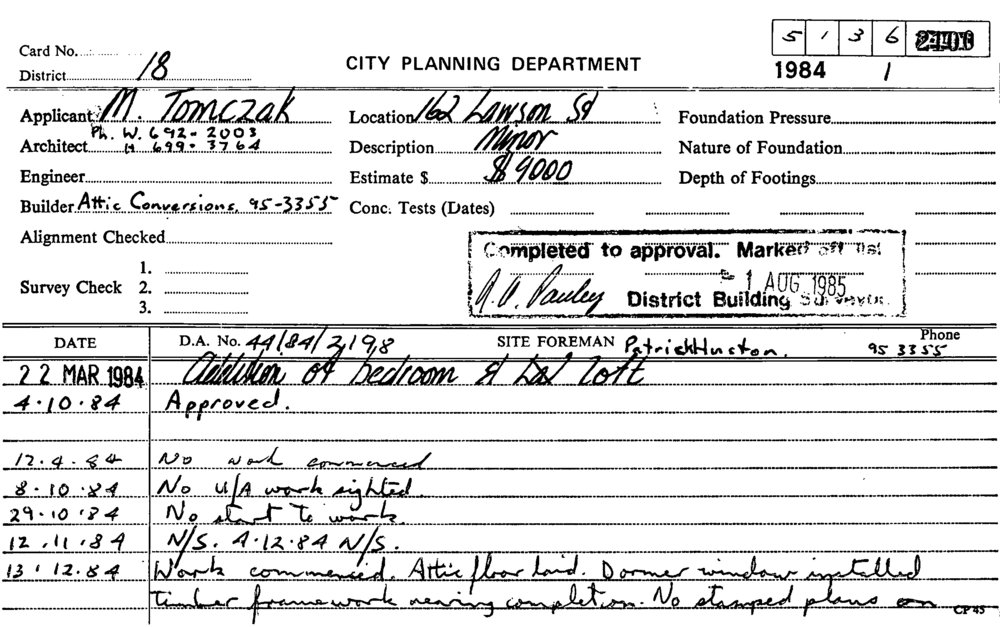 5 1 3 6
Card No.
District 18
CITY PLANNING DEPARTMENT
1984 1
Applicant M. Tomczak
Location 162 Lawson St
Foundation Pressure
Ph. W. 692-2003
Architect H 699-3764
Description Minor
Nature of Foundation
Engineer
Estimate $ $9000
Depth of Footings
Builder Attic Conversions. 95-3355
Conc. Tests (Dates)
Alignment Checked
Completed to approval. Marked off list
Survey Check 1. 2. 3.
- 1 AUG 1985
A. A. Pauley District Building Surveyor.
DATE D.A. No. 44/84/2198 SITE FOREMAN Patrick Huston. Phone 95 3355
22 MAR 1984 Addition of bedroom & loft
4.10.84 Approved.
12.4.84 No work commenced
8.10.84 No U/A work sighted.
29.10.84 No start to work.
12.11.84 N/S. 4.12.84 N/S.
13.12.84 Work commenced. Attic floor laid. Dormer window installed
timber frame work nearing completion. No stamped plans on
CP 45